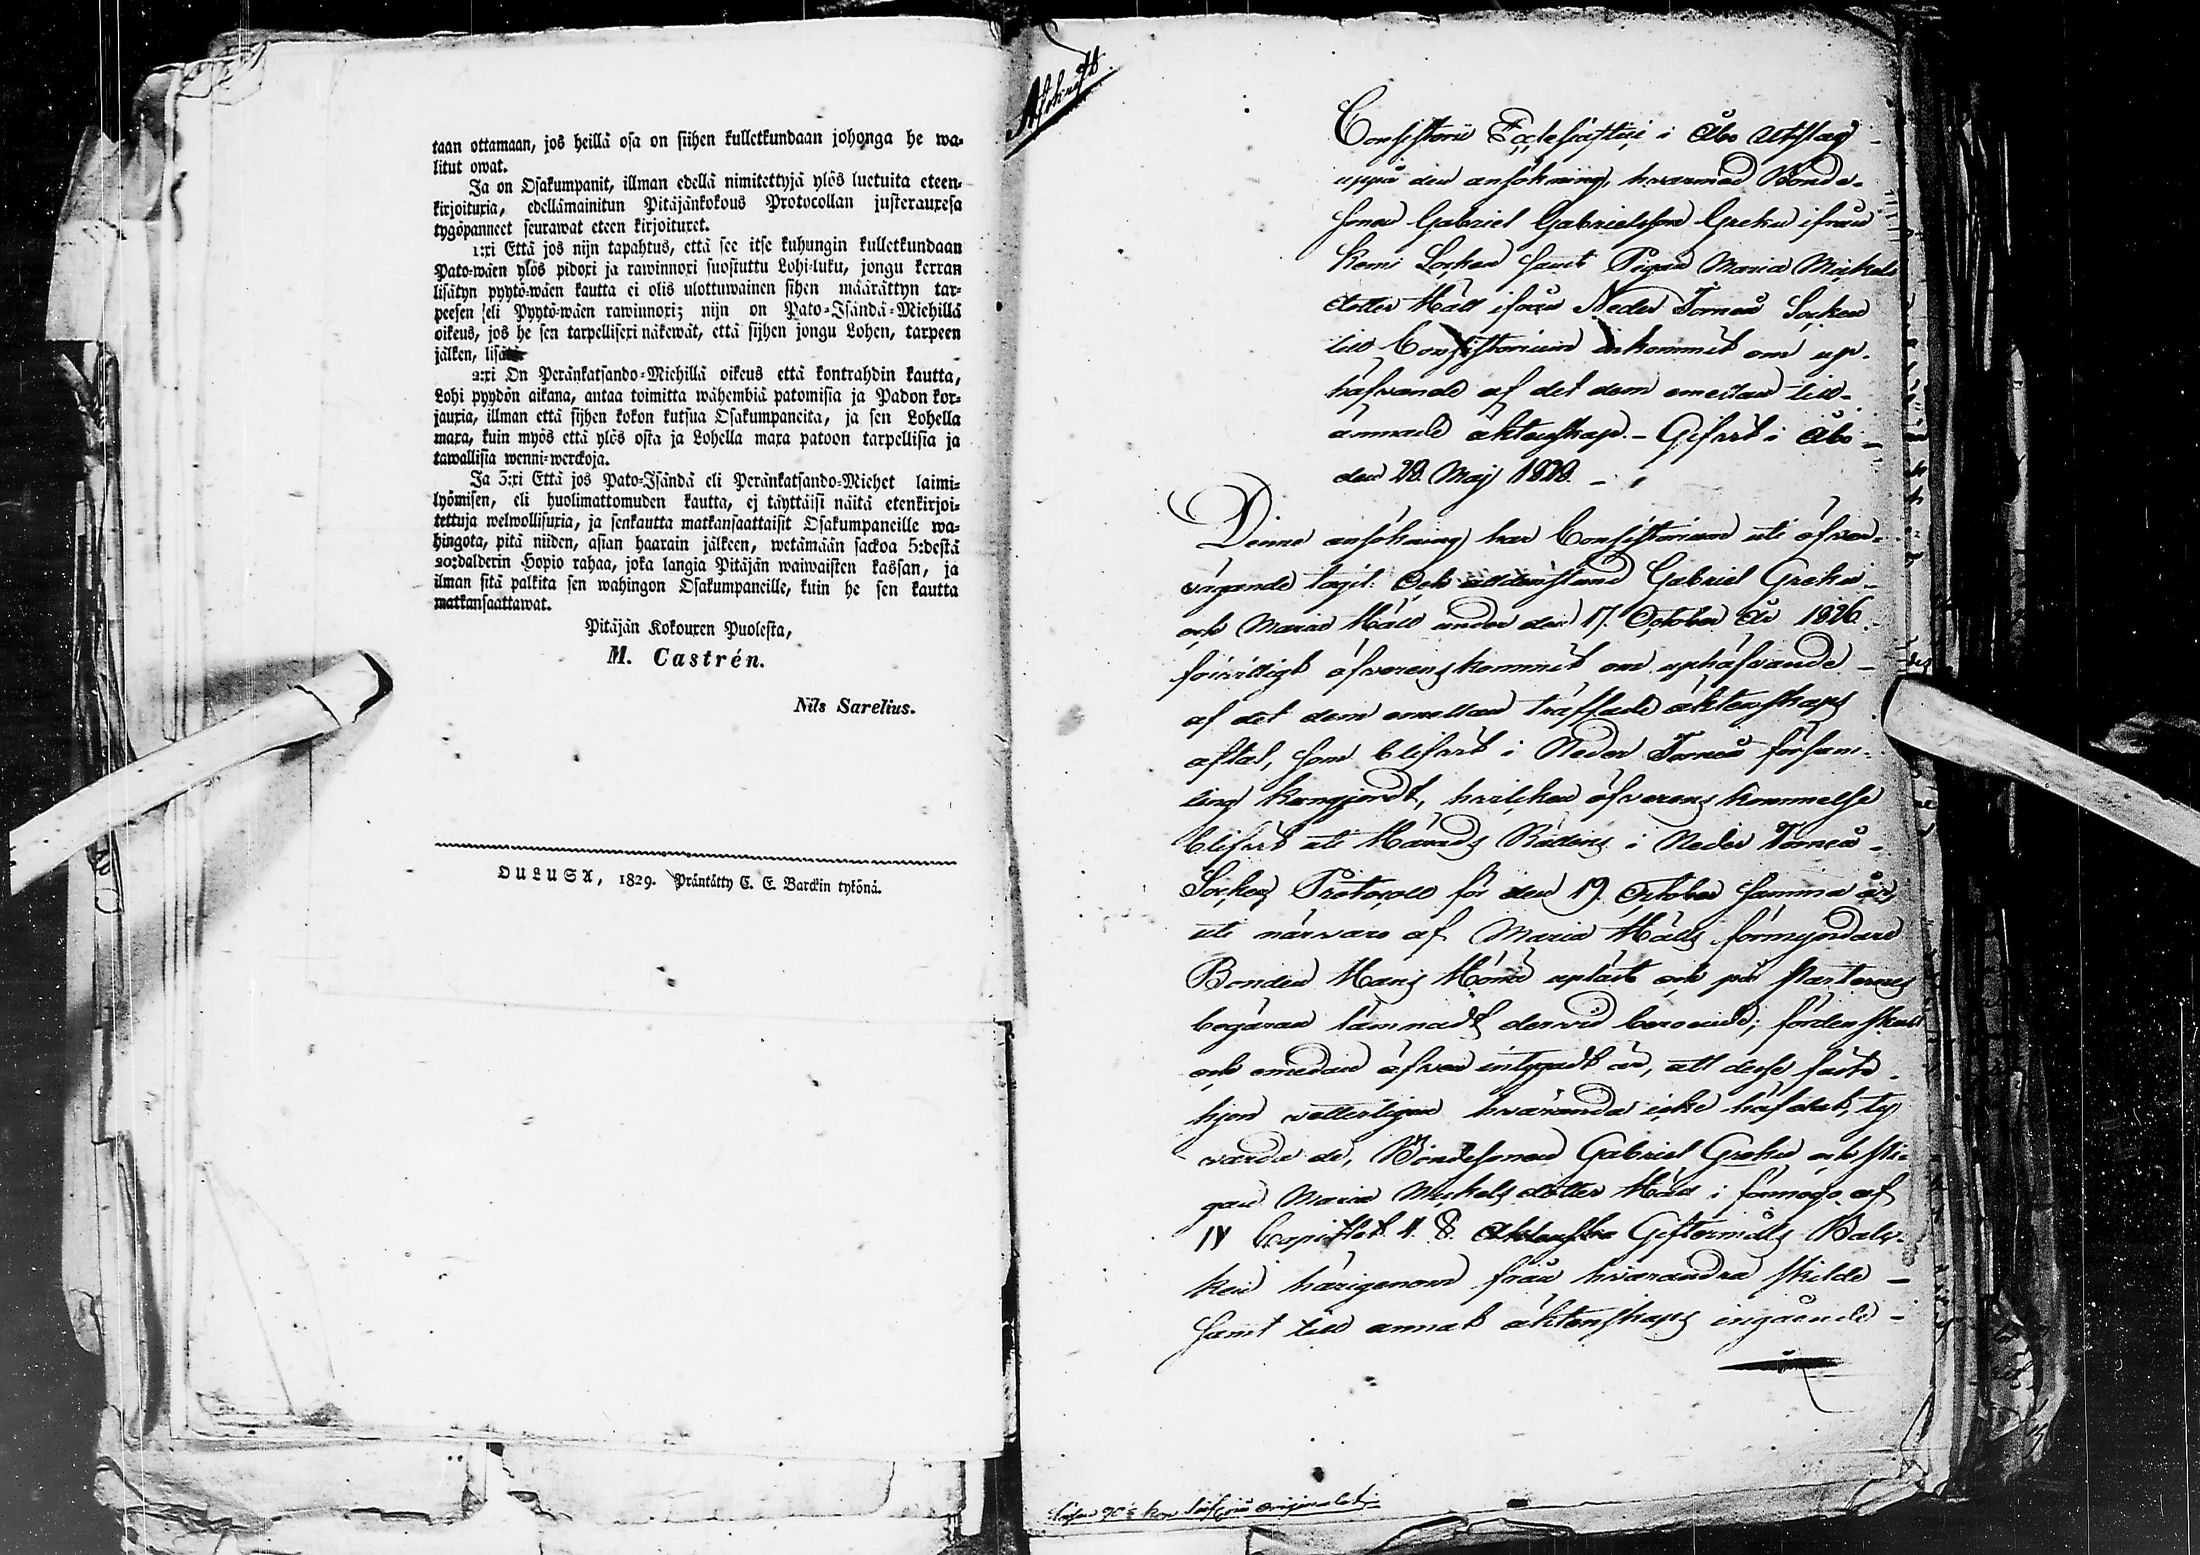 taan ottamaan, jos heillä osa on siihen kulletkundaan johonga he wa-
litut owat.
Ja on Osakumpanit, illman edellä nimitettyjä ylös luetuita eteen-
kirjoituxia, edellämainitun Pitäjänkokous Protocollan justerauxesa
tygöpanneet seurawat eteen kirjoituxet.
1:xi Että jos nijn tapahtus, että see itse kuhungin kulletkundaan
Pato-wäen ylös pidoxi ja rawinnoxi suostuttu Lohi-luku, jongu kerran
lisätyn pyytö-wäen kautta ei olis ulottuwainen siihen määrättyn tar-
peesen eli Pyytö-wäen rawinnoxi; nijn on Pato-Isändä-Miehillä
oikeus, jos he sen tarpellisexi näkewät, että sijhen jongu Lohen, tarpeen
jälken, lisätä
2:xi On Peränkatsando-Miehillä oikeus että kontrahdin kautta,
Lohi pyydön aikana, antaa toimitta wähembiä patomisia ja Padon kor-
jauxia, illman että sijhen kokon kutsua Osakumpaneita, ja sen Lohella
maxa, kuin myös että ylös osta ja Lohella maxa patoon tarpellisia ja
tawallisia wenni-werckoja.
Ja 3:xi Että jos Pato-Isändä eli Peränkatsando-Miehet laimi-
lyömisen, eli huolimattomuden kautta, ej täyttäisi näitä etenkirjoi-
tettuja welwollisuxia, ja senkautta matkansaattaisit Osakumpaneille wa-
hingota, pitä niiden, asian haarain jälkeen, wetämään sackoa 5:destä
20:dalderin Hopio rahaa, joka langia Pitäjän waiwaisten kassan, ja
ilman sitä palkita sen wahingon Osakumpaneille, kuin he sen kautta
matkansaattawat.
Pitäjän Kokouxen Puolesta,
M. Castrén.
Nils Sarelius.
OULUSA, 1829. Präntätty C. E. Barckin tykönä.
Afskrift.
Consistorii Ecclesiastici i Åbo Utslag
uppå den ansökning, hvarmed Bonde-
sonen Gabriel Gabrielsson Greku ifrån
Kemi Socken samt Pigan Maria Mickels
dotter Häll ifrån Neder Torneå Socken
till Consistorium inkommit om up-
häfvande af det dem emellan till-
ämnade äktenskap. - Gifvit i Åbo
den 28. Maj 1828.
Denne ansökning har Consistorium uti öfver-
vägande tagit: Och
Gabriel Greku
och Maria Häll under den 17. October År 1826
frivilligt öfverenskommit om uphäfvande
af det dem emellan träffade äktenskaps
aftal, som blifvit i Neder Torneå försam-
ling kungjordt, hvilken öfverenskommelse
blifvit uti Härads Rättens i Neder Torneå
Sockens Protocoll för den 19. October samma år
uti närvaro af Maria Hälls förmyndare
Bonden Hans upläst och på Parternes
begäran lämnadt dervid beroende; fördenskull
och emedan äfven intygadt är, att desse fäste-
hjon vetterligen hvaranda icke häfdat, ty
varda de, Bondesonen Gabriel Greku och Pi-
gan Maria Mickels dotter Häll i förmågo af
IV Capitlet 4. § Giftermåls Bal-
ken härigenom från hvarandra skilde
samt till annat äktenskaps ingående